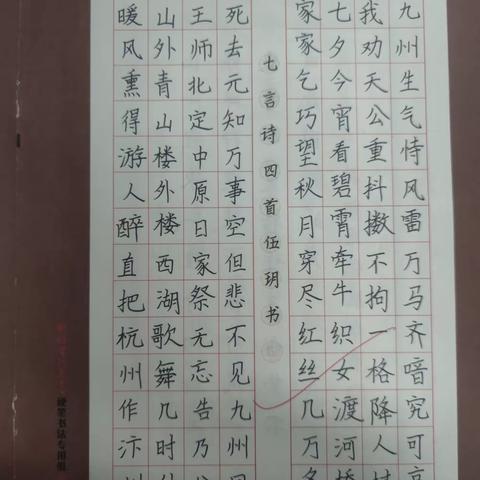 九州生气恃风雷万马齐喑究可哀
我劝天公重抖擞不拘一格降人材
七夕今宵看碧霄牵牛织女渡河桥
家家乞巧望秋月穿尽红丝几万条
七言诗四首伍玥书
死去元知万事空但悲不见九州同
王师北定中原日家祭无忘告乃
山外青山楼外楼西湖歌舞几时
暖风熏得游人醉直把杭州作汴
硬笔书法专用纸